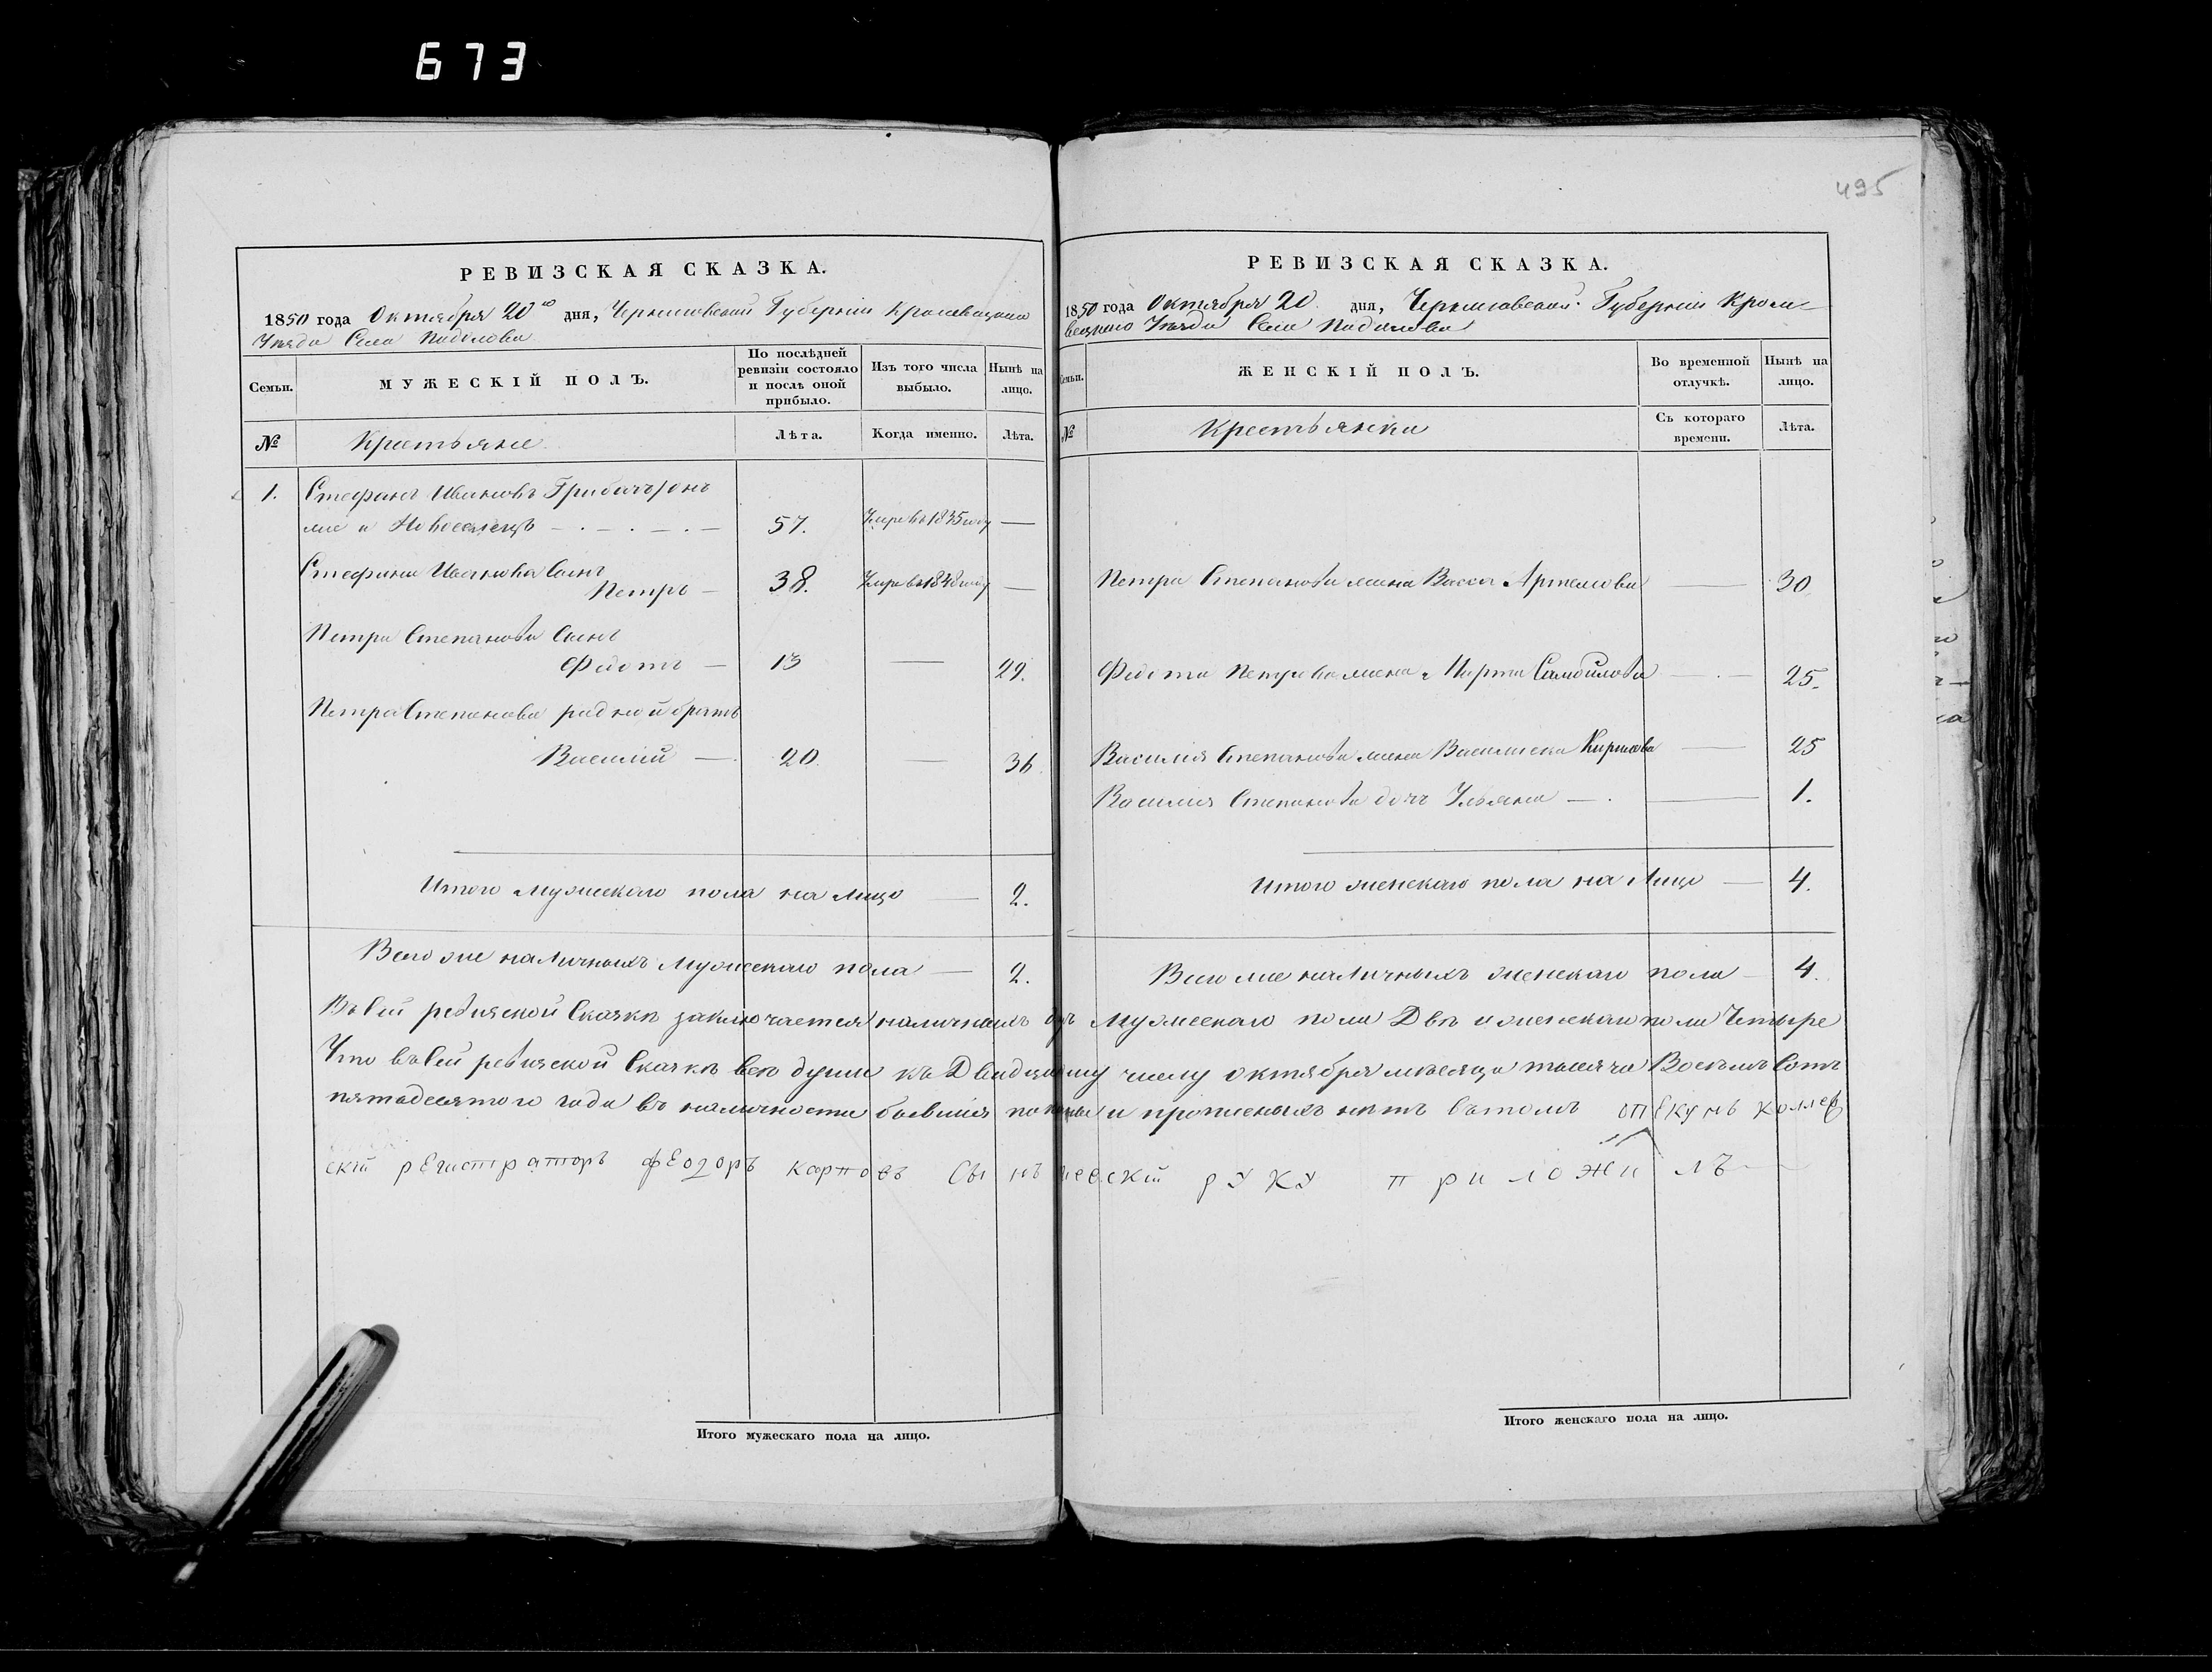 673
495
РЕВИЗСКАЯ СКАЗКА.
1850 года Октября 20го дня, Черниговской Губернии Кролевецкаго
Уезда Села Подолова
Семьи.
МУЖЕСКІЙ ПОЛЪ.
По послѣдней ревизіи состояло и послѣ оной прибыло.
Изъ того числа выбыло.
Нынѣ на лицо.
№
Крестьяне
Лѣта.
Когда именно.
Лѣта.
1. Стефанъ Ивановъ
57. Умре въ 1835 году —
Стефана Иванова Сынъ
Петръ — 38. Умре въ 1848 году —
Петра Степанова Сынъ
Федотъ — 13 — 29.
Петра Степанова родной братъ
Василій — 20 — 36.
Итого мужескаго пола на лицо — 2.
Всего же наличныхъ мужескаго пола — 2.
РЕВИЗСКАЯ СКАЗКА.
1850 года Октября 20 дня, Черниговской Губернии Кроле-
вецкаго Уезда Села Подолова
Семьи.
ЖЕНСКІЙ ПОЛЪ.
Во временной отлучкѣ.
Нынѣ на лицо.
№
Крестьянки
Съ котораго времени.
Лѣта.
Петра Степанова жена Васса Артемова — 30
Федота Петрова жена Марта Самойлова — 25.
Василія Степанова жена Василиска Кирилова — 25
Василія Степанова дочь Ульяна — 1.
Итого женскаго пола на лицо — 4.
Всего же наличныхъ женскаго пола — 4.
Въ сей ревизской Сказкѣ заключается наличныхъ душъ мужескаго пола Двѣ и женскаго пола Четыре
Что въ сей ревизской Сказкѣ все души къ Двадцатому числу октября месяца тысяча Восемь Сотъ
пятьдесятого года въ наличности бывшія показаны и прописныхъ нетъ въ томъ опекунъ коллеж
скій регистраторъ феодоръ карповъ Сынъ руку приложилъ
Итого мужескаго пола на лицо.
Итого женскаго пола на лицо.